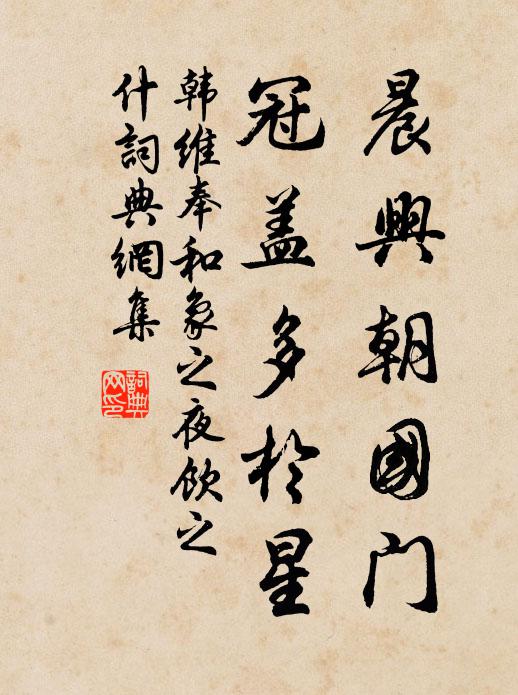 晨興朝國門
冠盖多於星
韩維奉和象之夜飲之
什詞典網集
詞典
网印